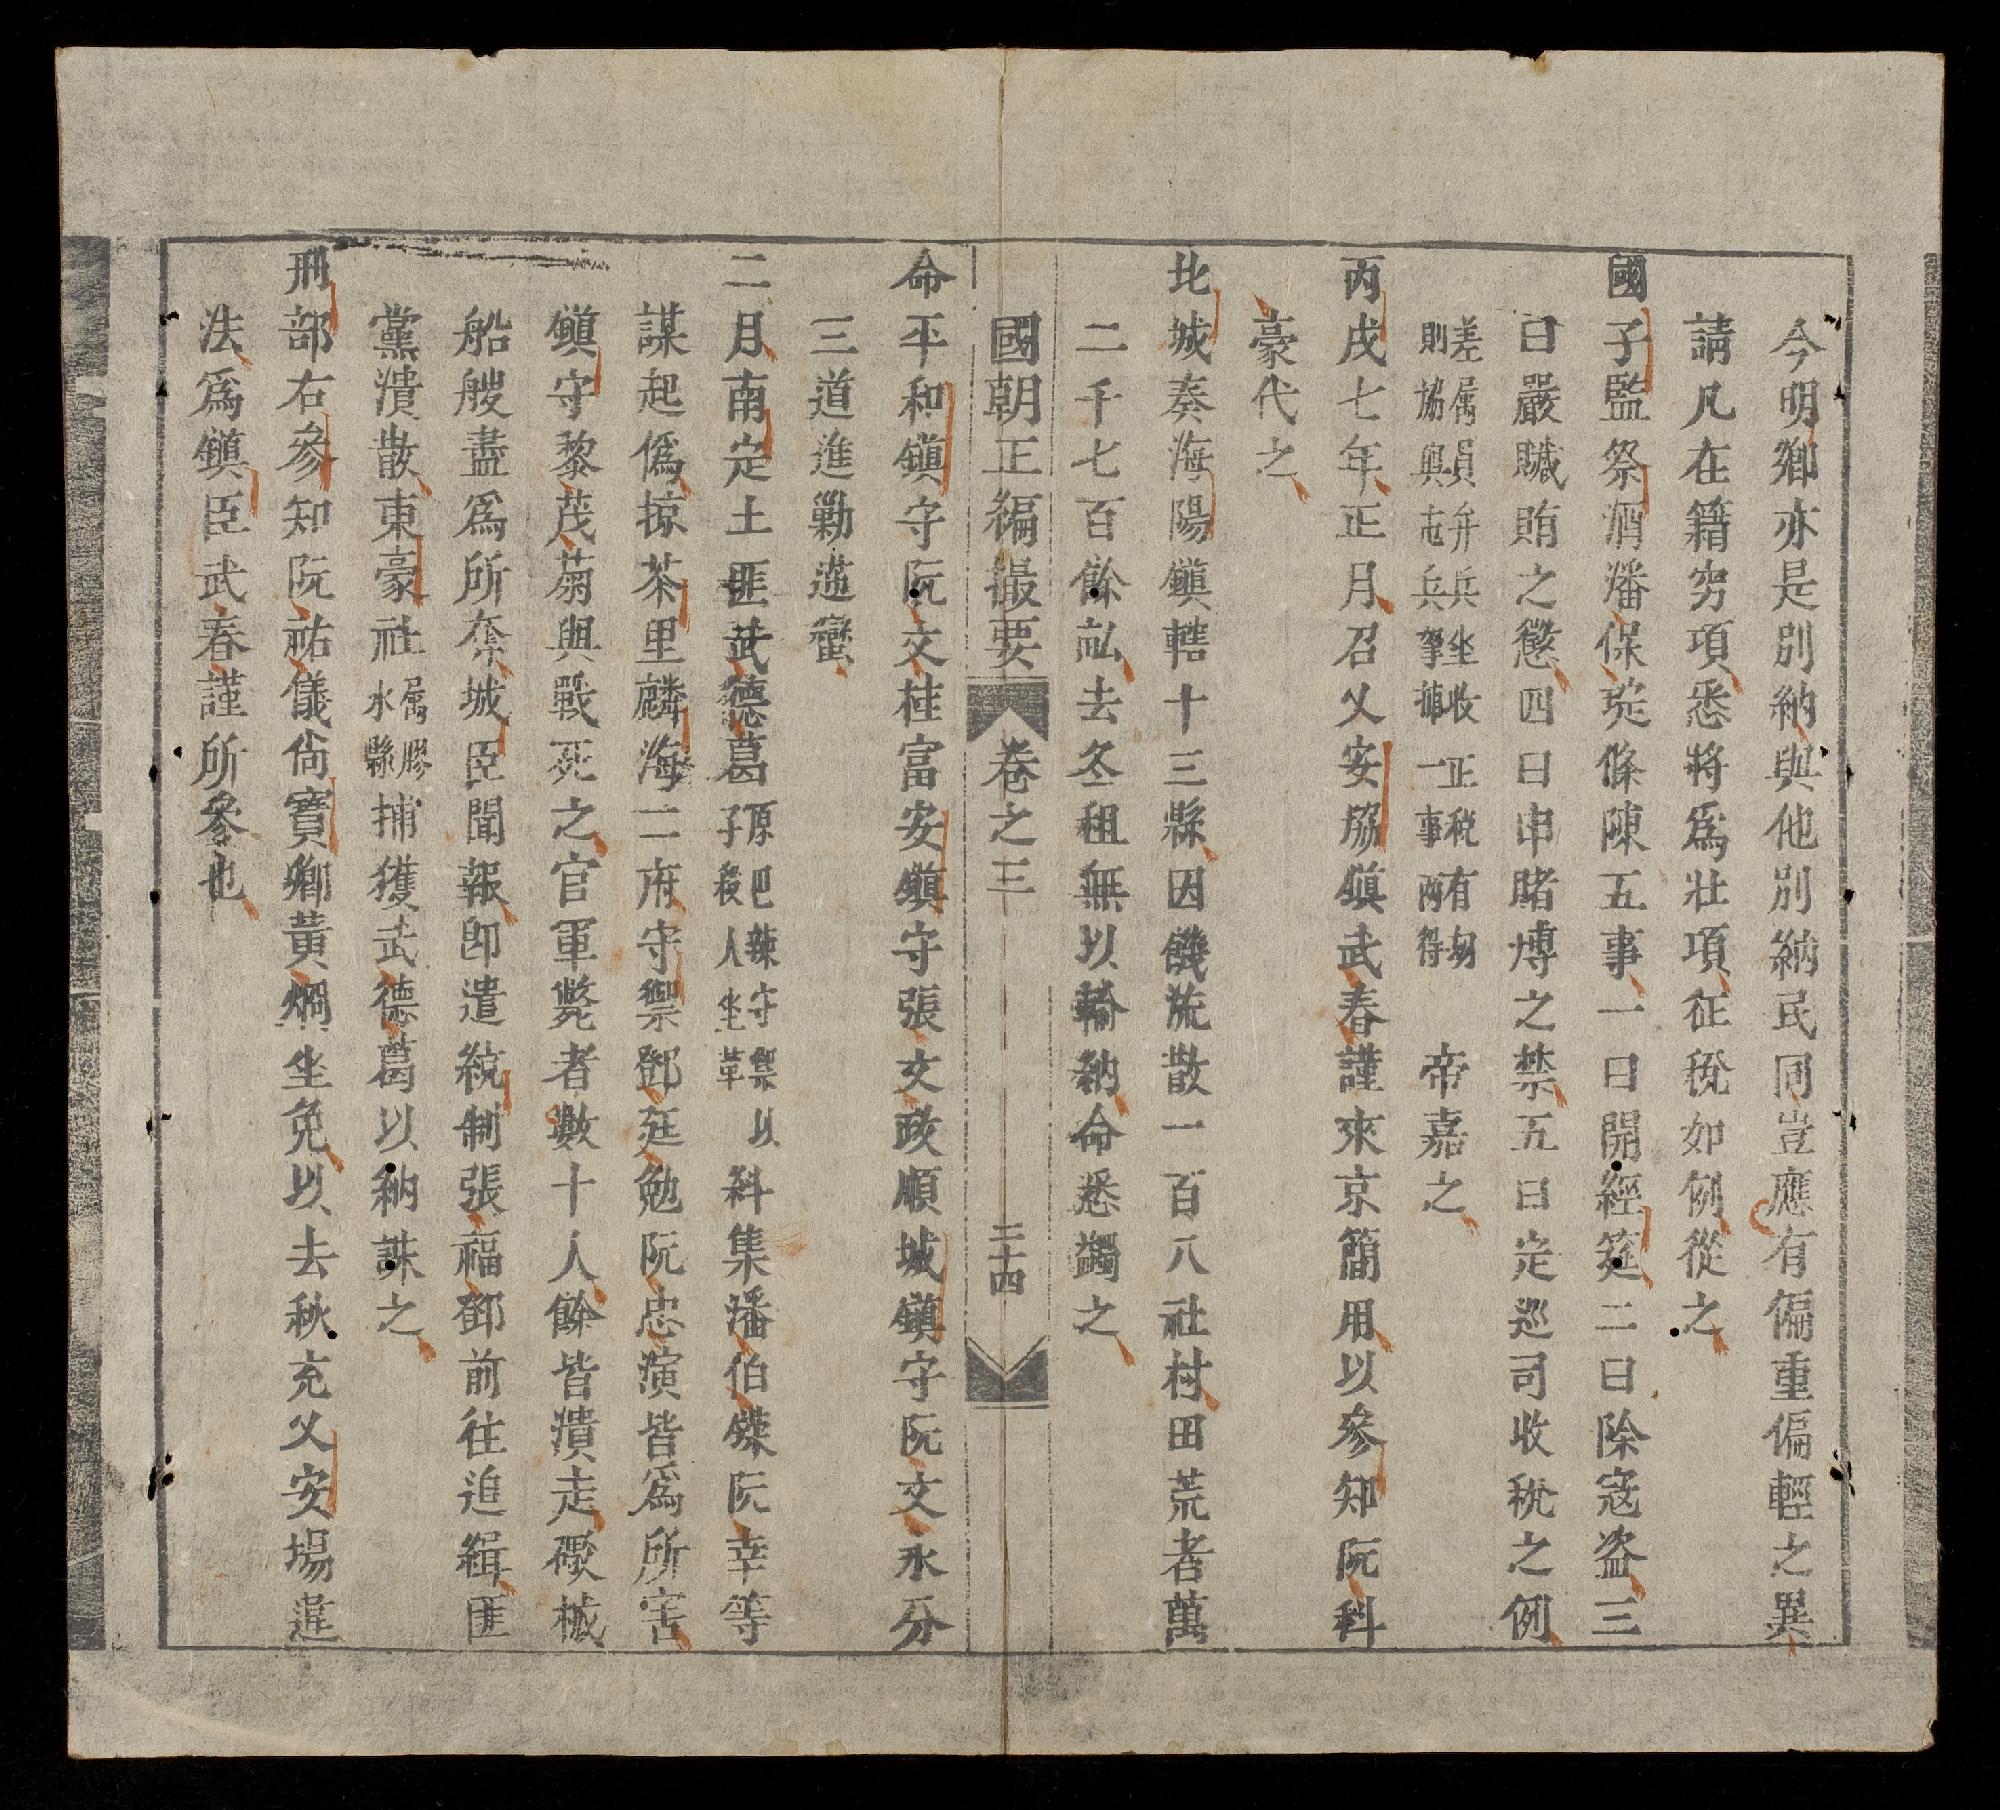 今明鄉亦是別納與他別納民同豈應有偏重偏輕之異
請凡在籍窮項悉將爲壯項征稅如例從之
國子監祭酒潘保㝎條陳五事一曰開經筵二曰除寇盗三
曰嚴贓賄之懲四曰申賭博之禁五曰㝎巡司收稅之例
差属員弁兵坐收正稅有刼
則協與屯兵拏捕一事兩得
帝嘉之
丙戌七年正月召乂安協鎮武春謹來京簡用以參知阮科
豪代之
北城奏海陽鎮轄十三縣因饑流散一百八社村田荒者萬
二千七百餘畆去冬租無以輸納命悉蠲之
國朝正編撮要 卷之三 二十四
命平和鎮守阮文桂富安鎮守張文政順城鎮守阮文永分
三道進勦蓮蠻
二月南定土匪武德葛
原巴辣守禦以
子殺人坐革
糾集潘伯鑅阮幸等
謀起僞掠茶里麟海二府守禦鄧廷勉阮忠演皆爲所害
鎮守黎茂菊與戰死之官軍斃者數十人餘皆潰走礮械
船艘盡爲所奪城臣聞報卽遣統制張福鄧前往追緝匪
黨潰散東豪社
属膠
水縣
捕獲武德葛以納誅之
刑部右參知阮祐儀尙寶卿黃烱坐免以去秋充乂安場違
法爲鎮臣武春謹所參也